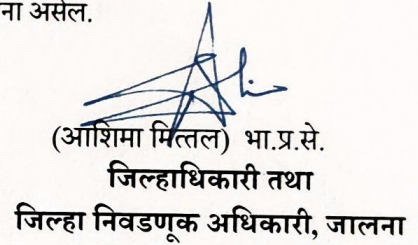 ना असेल.
(आशिमा मित्तल) भा.प्र.से.
जिल्हाधिकारी तथा
जिल्हा निवडणूक अधिकारी, जालना